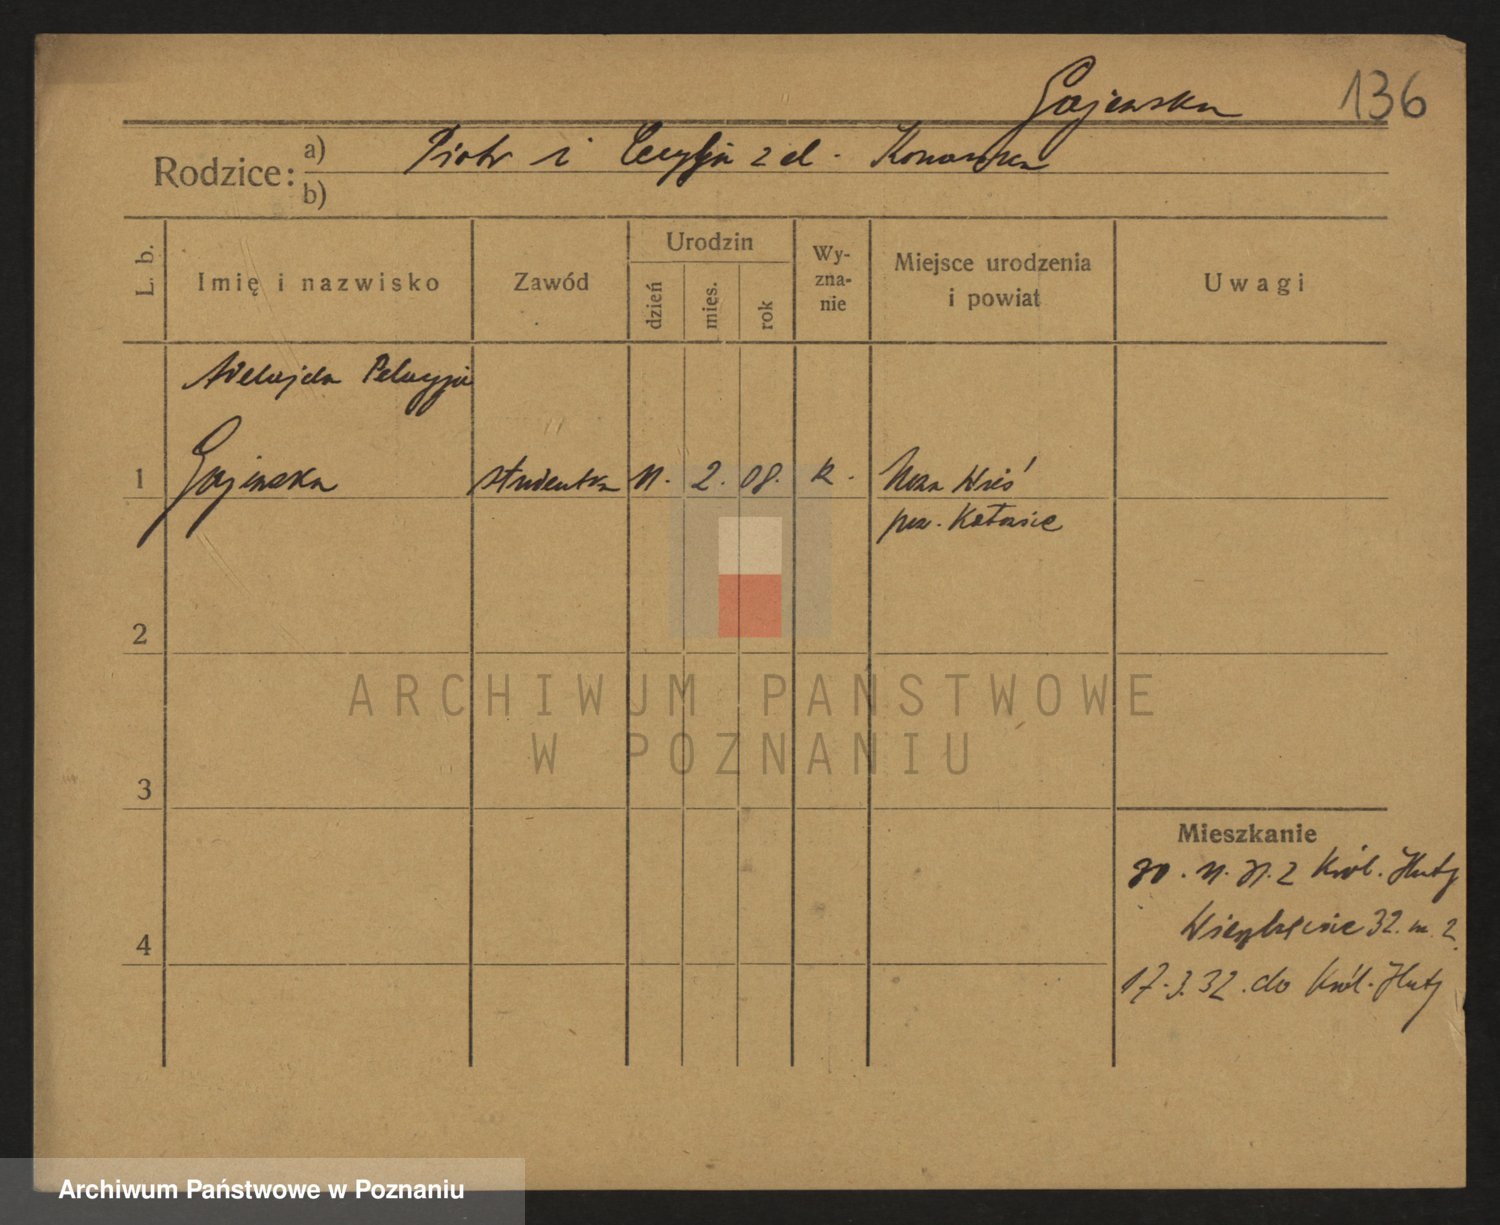 Gajewska 136
Rodzice: a) Piotr i Cecylja z d.
b)
L. b.
Imię i nazwisko
Zawód
Urodzin
dzień
mies.
rok
Wy-
zna-
nie
Miejsce urodzenia
i powiat
Uwagi
Adelajda Pelagja
1 Gajewska studentka 11. 2. 08. k. Nowa Wieś
pow. Katowice
2
3
4
Mieszkanie
30. 11. 31. z Król. Huty
32. m. 2.
17. 3. 32. do Król. Huty
ARCHIWUM PAŃSTWOWE
W POZNANIU
Archiwum Państwowe w Poznaniu